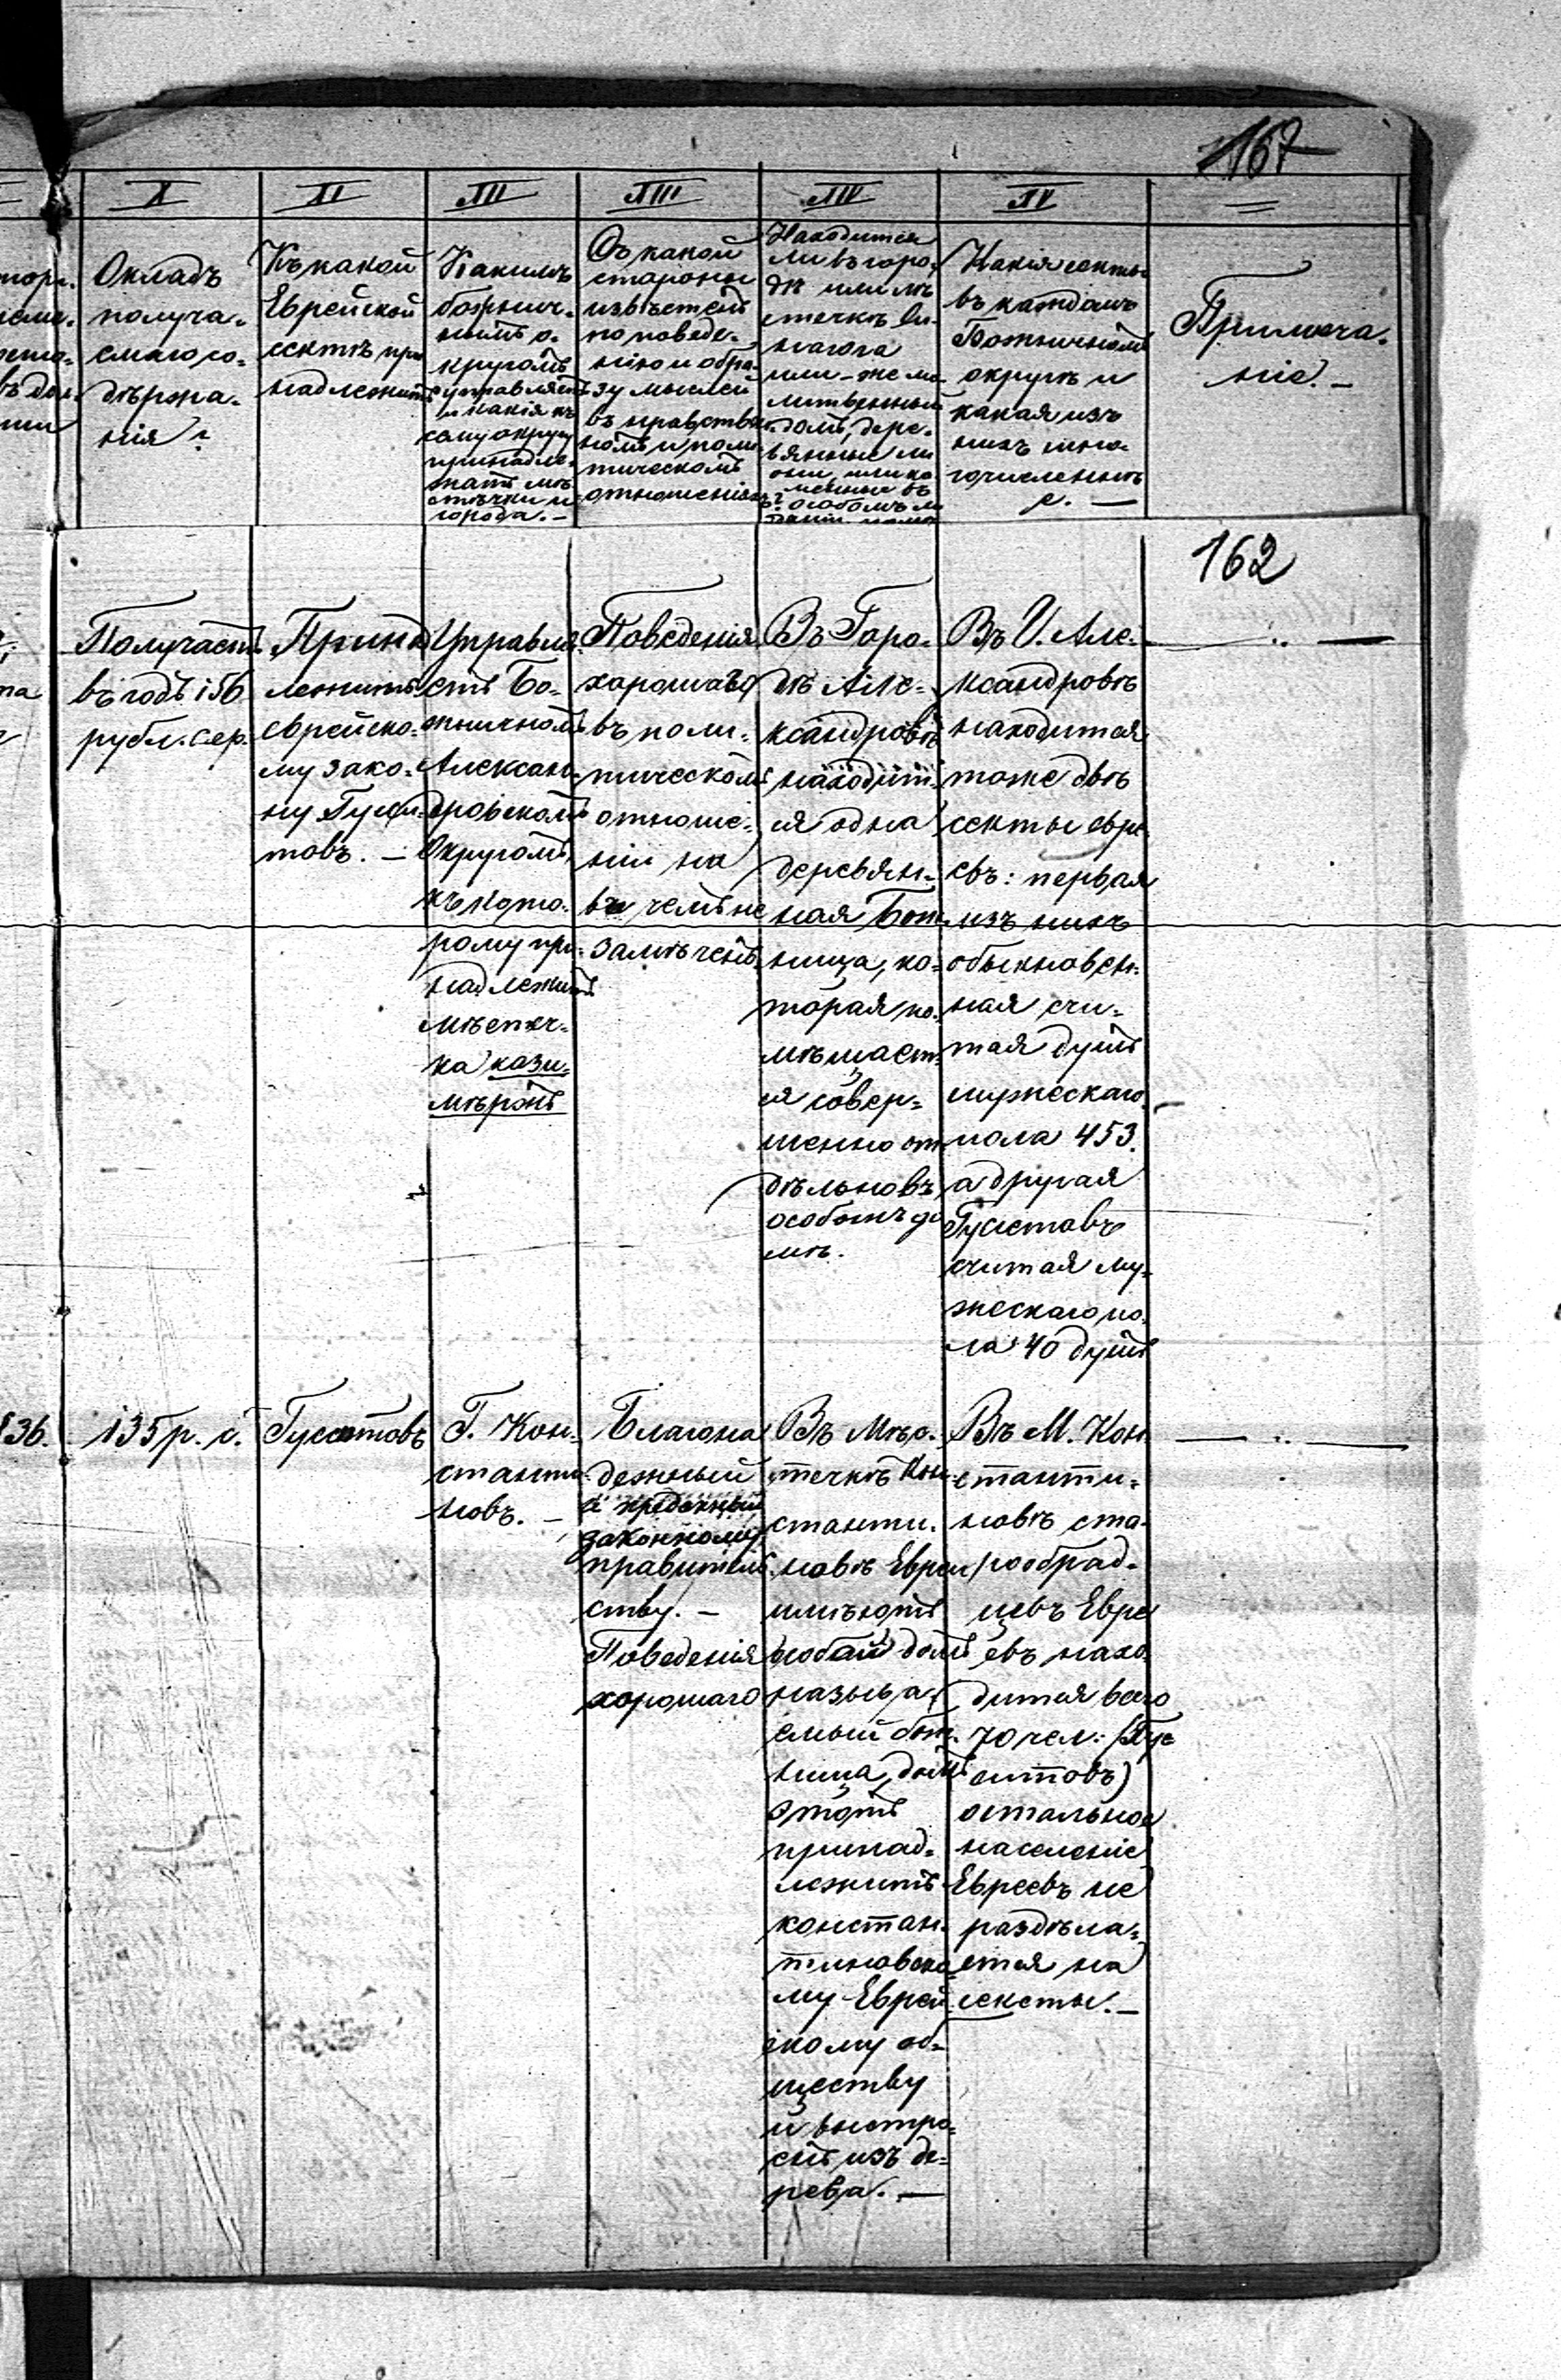 167
X
XI
XII
XIII
XIV
XV
Окладъ
получа-
емаго со-
дѣржа-
нія?
Къ какой
Еврейской
сектѣ при
надлежитъ
Какимъ
божнич-
нымъ о-
кругомъ
управляетъ
и какія къ
сему округу
принадле-
жатъ мѣ
стечки и
города. —
Съ какой
стороны
извѣстенъ
по поведе-
нію и обра-
зу мыслей
въ нравствен
номъ и поли
тическомъ
отношеніяхъ?
Находится
ли въ горо-
дѣ или мѣ
стечкѣ си-
нагога
или-же мо-
литвенный
домъ, дере-
вянные ли
они, или ка
менные въ
особомъ ли
Какія секты
въ каждомъ
Божничномъ
округѣ и
какая изъ
нихъ мно-
гочисленнѣ
е. —
Примѣча-
ніе. —
162
Получаетъ
въ годъ 156
рубл. сер.
Принад
лежитъ
еврейско-
му зако-
ну Гуси-
товъ. —
Управля-
етъ Бо-
жничномъ
Алексан-
дровскомъ
Округомъ,
къ кото-
рому при-
надлежитъ
мѣстеч-
ка кази-
мѣржъ
Поведенія
хорошаго
въ поли-
тическомъ
отноше-
ніи на
въ чемъ не
замѣченъ.
Въ Горо-
дѣ Але-
ксандровѣ
находит-
ся одна
деревян-
ная Бож-
ница, ко-
торая по-
мѣщает-
ся совер-
шенно от
дѣльно въ
особомъ до
мѣ.
Въ Г. Але-
ксандровѣ
находится
тоже двѣ
секты евре
евъ: первая
изъ нихъ
обыкновен-
ная счи-
тая душъ
мужескаго
пола 453.
а другая
Гуситовъ
считая му-
жескаго по-
ла 40 душъ
36.
135 р. с.
Гуситовъ
Г. Кон-
станти-
новъ. —
Благона
дежный
и преданный
законному
правитель
ству. —
Поведенія
хорошаго
Въ Мѣс-
течкѣ Кон-
станти-
новѣ Евреи
имѣютъ
особый домъ
называ-
емый бож-
ница, домъ
этотъ
принад-
лежитъ
констан-
тиновско
му Еврей
скому об-
ществу
и выстро-
енъ изъ де-
рева. —
Въ М. Кон
станти-
новѣ ста-
рообряд-
цевъ Евре
евъ нахо
дится всего
70 чел. (Гус
ситовъ)
остальное
населеніе
Евреевъ не
раздѣля-
ется на
секты. —